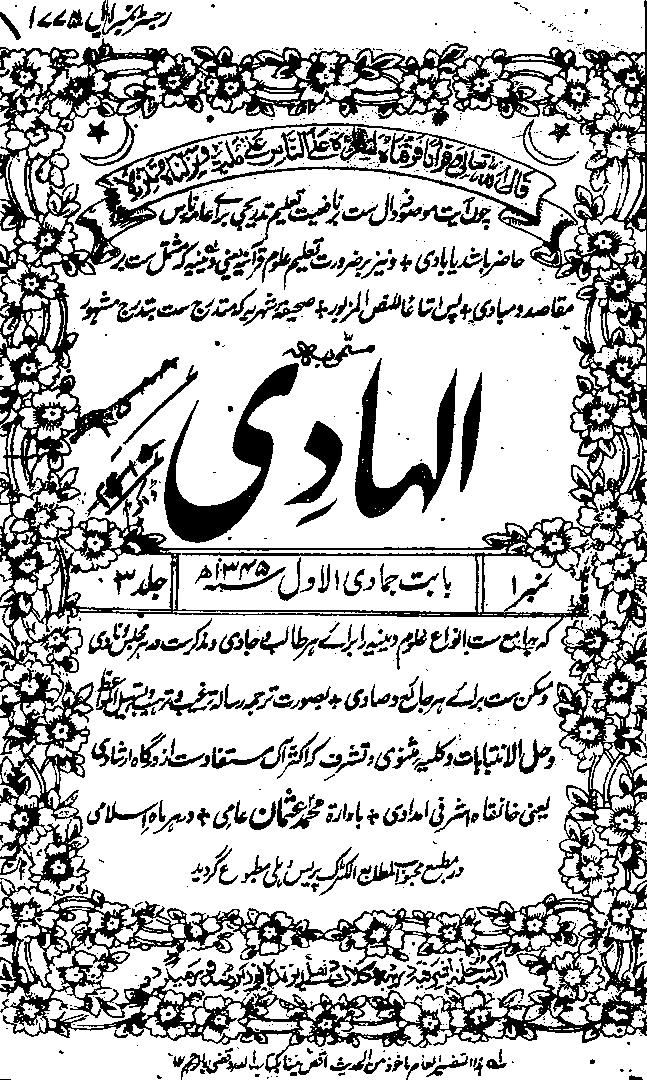 رجسٹر نمبر ایل ۱۷۷۵
قال اللہ تعالی وقرانا فرقناہ لتقرأہ علی الناس علی مکث ونزلناہ تنزیلا
چوں آیت موصوفہ دال ست بر نافعیت تعلیم تدریجی برائے عامہ ناس
حاضر باشد یا بادی + ونیز بر ضرورت تعلیم علوم قرآنیہ یعنی دینیہ کہ مشتمل ست بر
مقاصد و مبادی + پس اتباعًا للنص المزبور + صحیفہ شہریہ کہ متدرج ست بتدرج مشہور
مسمّی بہ
الہادی
نمبر ۱
بابت جمادی الاول سنہ ۱۳۴۵ھ
جلد ۳
کہ جامع ست بانواع علوم دینیہ را برائے ہر طالب جادی و مذکر ست در ہر مجلس و نادی
و مسکن ست برائے ہر جائع و صادی + بصورت ترجمہ رسالہ ترغیب و ترہیب و تسہیل المواعظ
و حل الانتباہات و کلید مثنوی و تشرف کہ اکثر آں مستفاد ست از درگاہ ارشادی
یعنی خانقاہ اشرفی امدادی + بادارۃ محمد عثمان عامی + در ہر ماہ اسلامی
در مطبع محبوب المطابع الکٹرک پریس دہلی مطبوع گردید